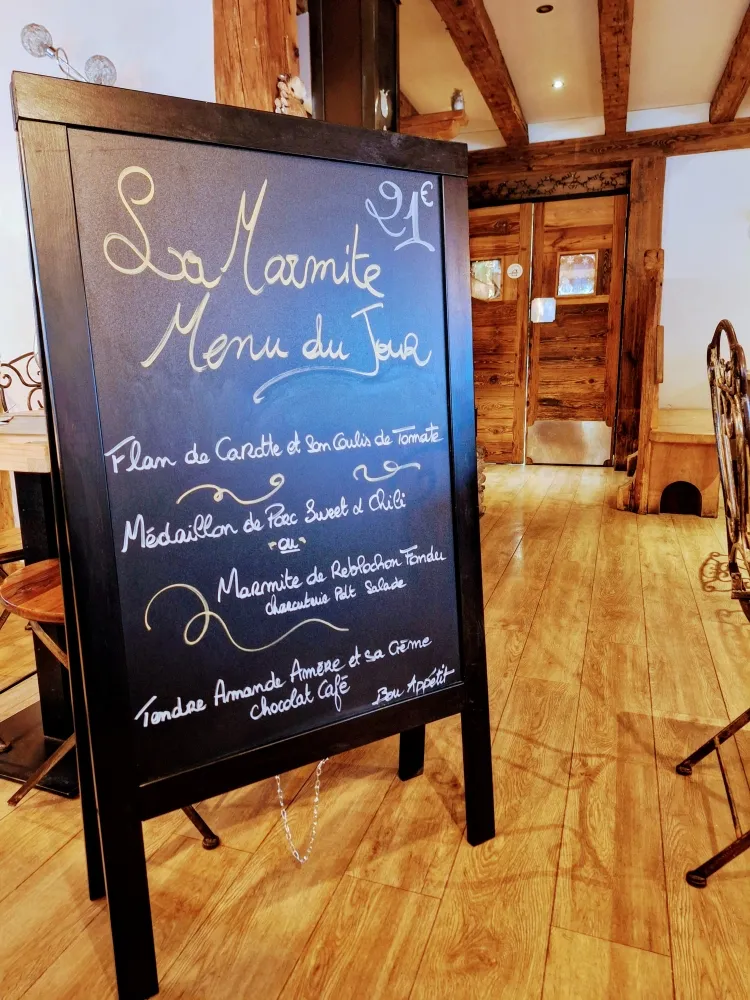 21€
La Marmite
Menu du Jour
Flan de Carotte et Son Coulis de Tomate
Médaillon de Porc Sweet d Chili
"ou"
Marmite de Reblochon Fondu
charcuterie Pdt Salade
Tendre Amande Amère et sa Crème
chocolat Café
Bon Appétit